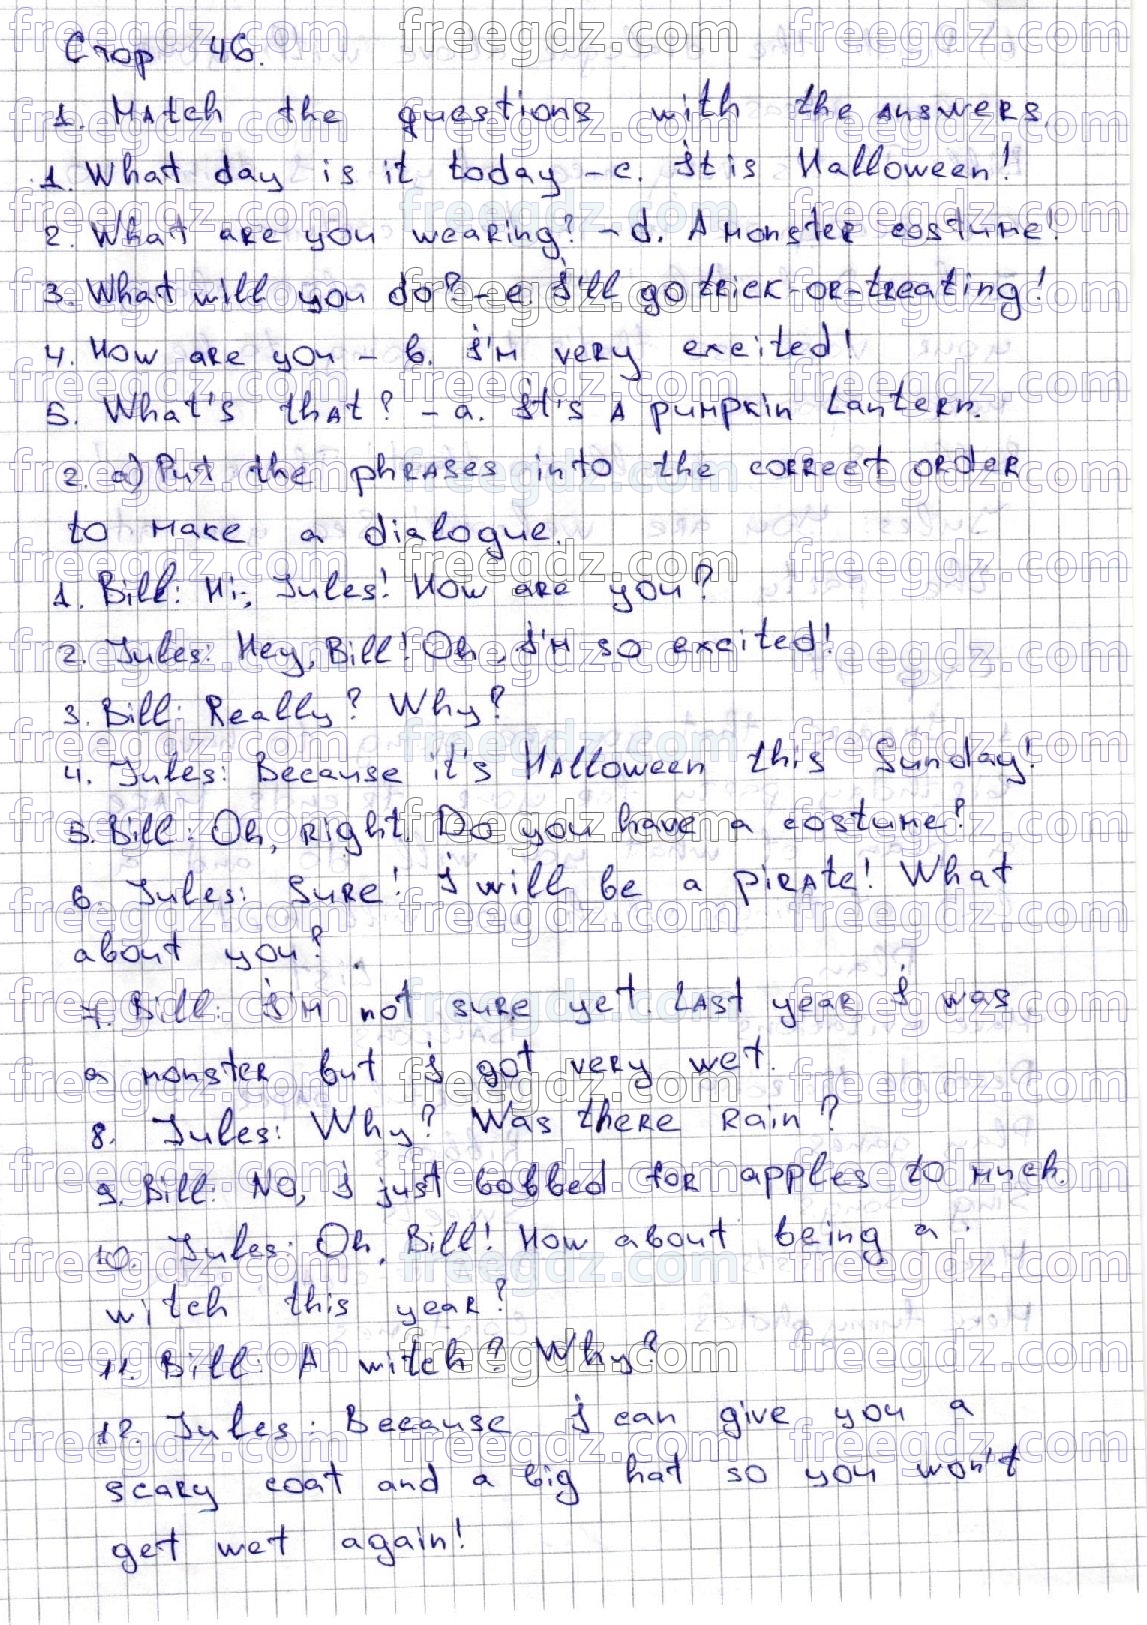 Стор 46.
1. Match the questions with the answers.
1. What day is it today - c. It is Halloween!
2. What are you wearing? - d. A monster costume!
3. What will you do? - e. I'll go trick-or-treating!
4. How are you - b. I'm very excited!
5. What's that? - a. It's a pumpkin lantern.
2. a) Put the phrases into the correct order
to make a dialogue.
1. Bill: Hi, Jules! How are you?
2. Jules: Hey, Bill! Oh, I'm so excited!
3. Bill: Really? Why?
4. Jules: Because it's Halloween this Sunday!
5. Bill: Oh, right. Do you have a costume?
6. Jules: Sure! I will be a pirate! What
about you?
7. Bill: I'm not sure yet. Last year I was
a monster but I got very wet.
8. Jules: Why? Was there rain?
9. Bill: No, I just bobbed for apples to much.
10. Jules: Oh, Bill! How about being a
witch this year?
11. Bill: A witch? Why?
12. Jules: Because I can give you a
scary coat and a big hat so you won't
get wet again!
freegdz.com